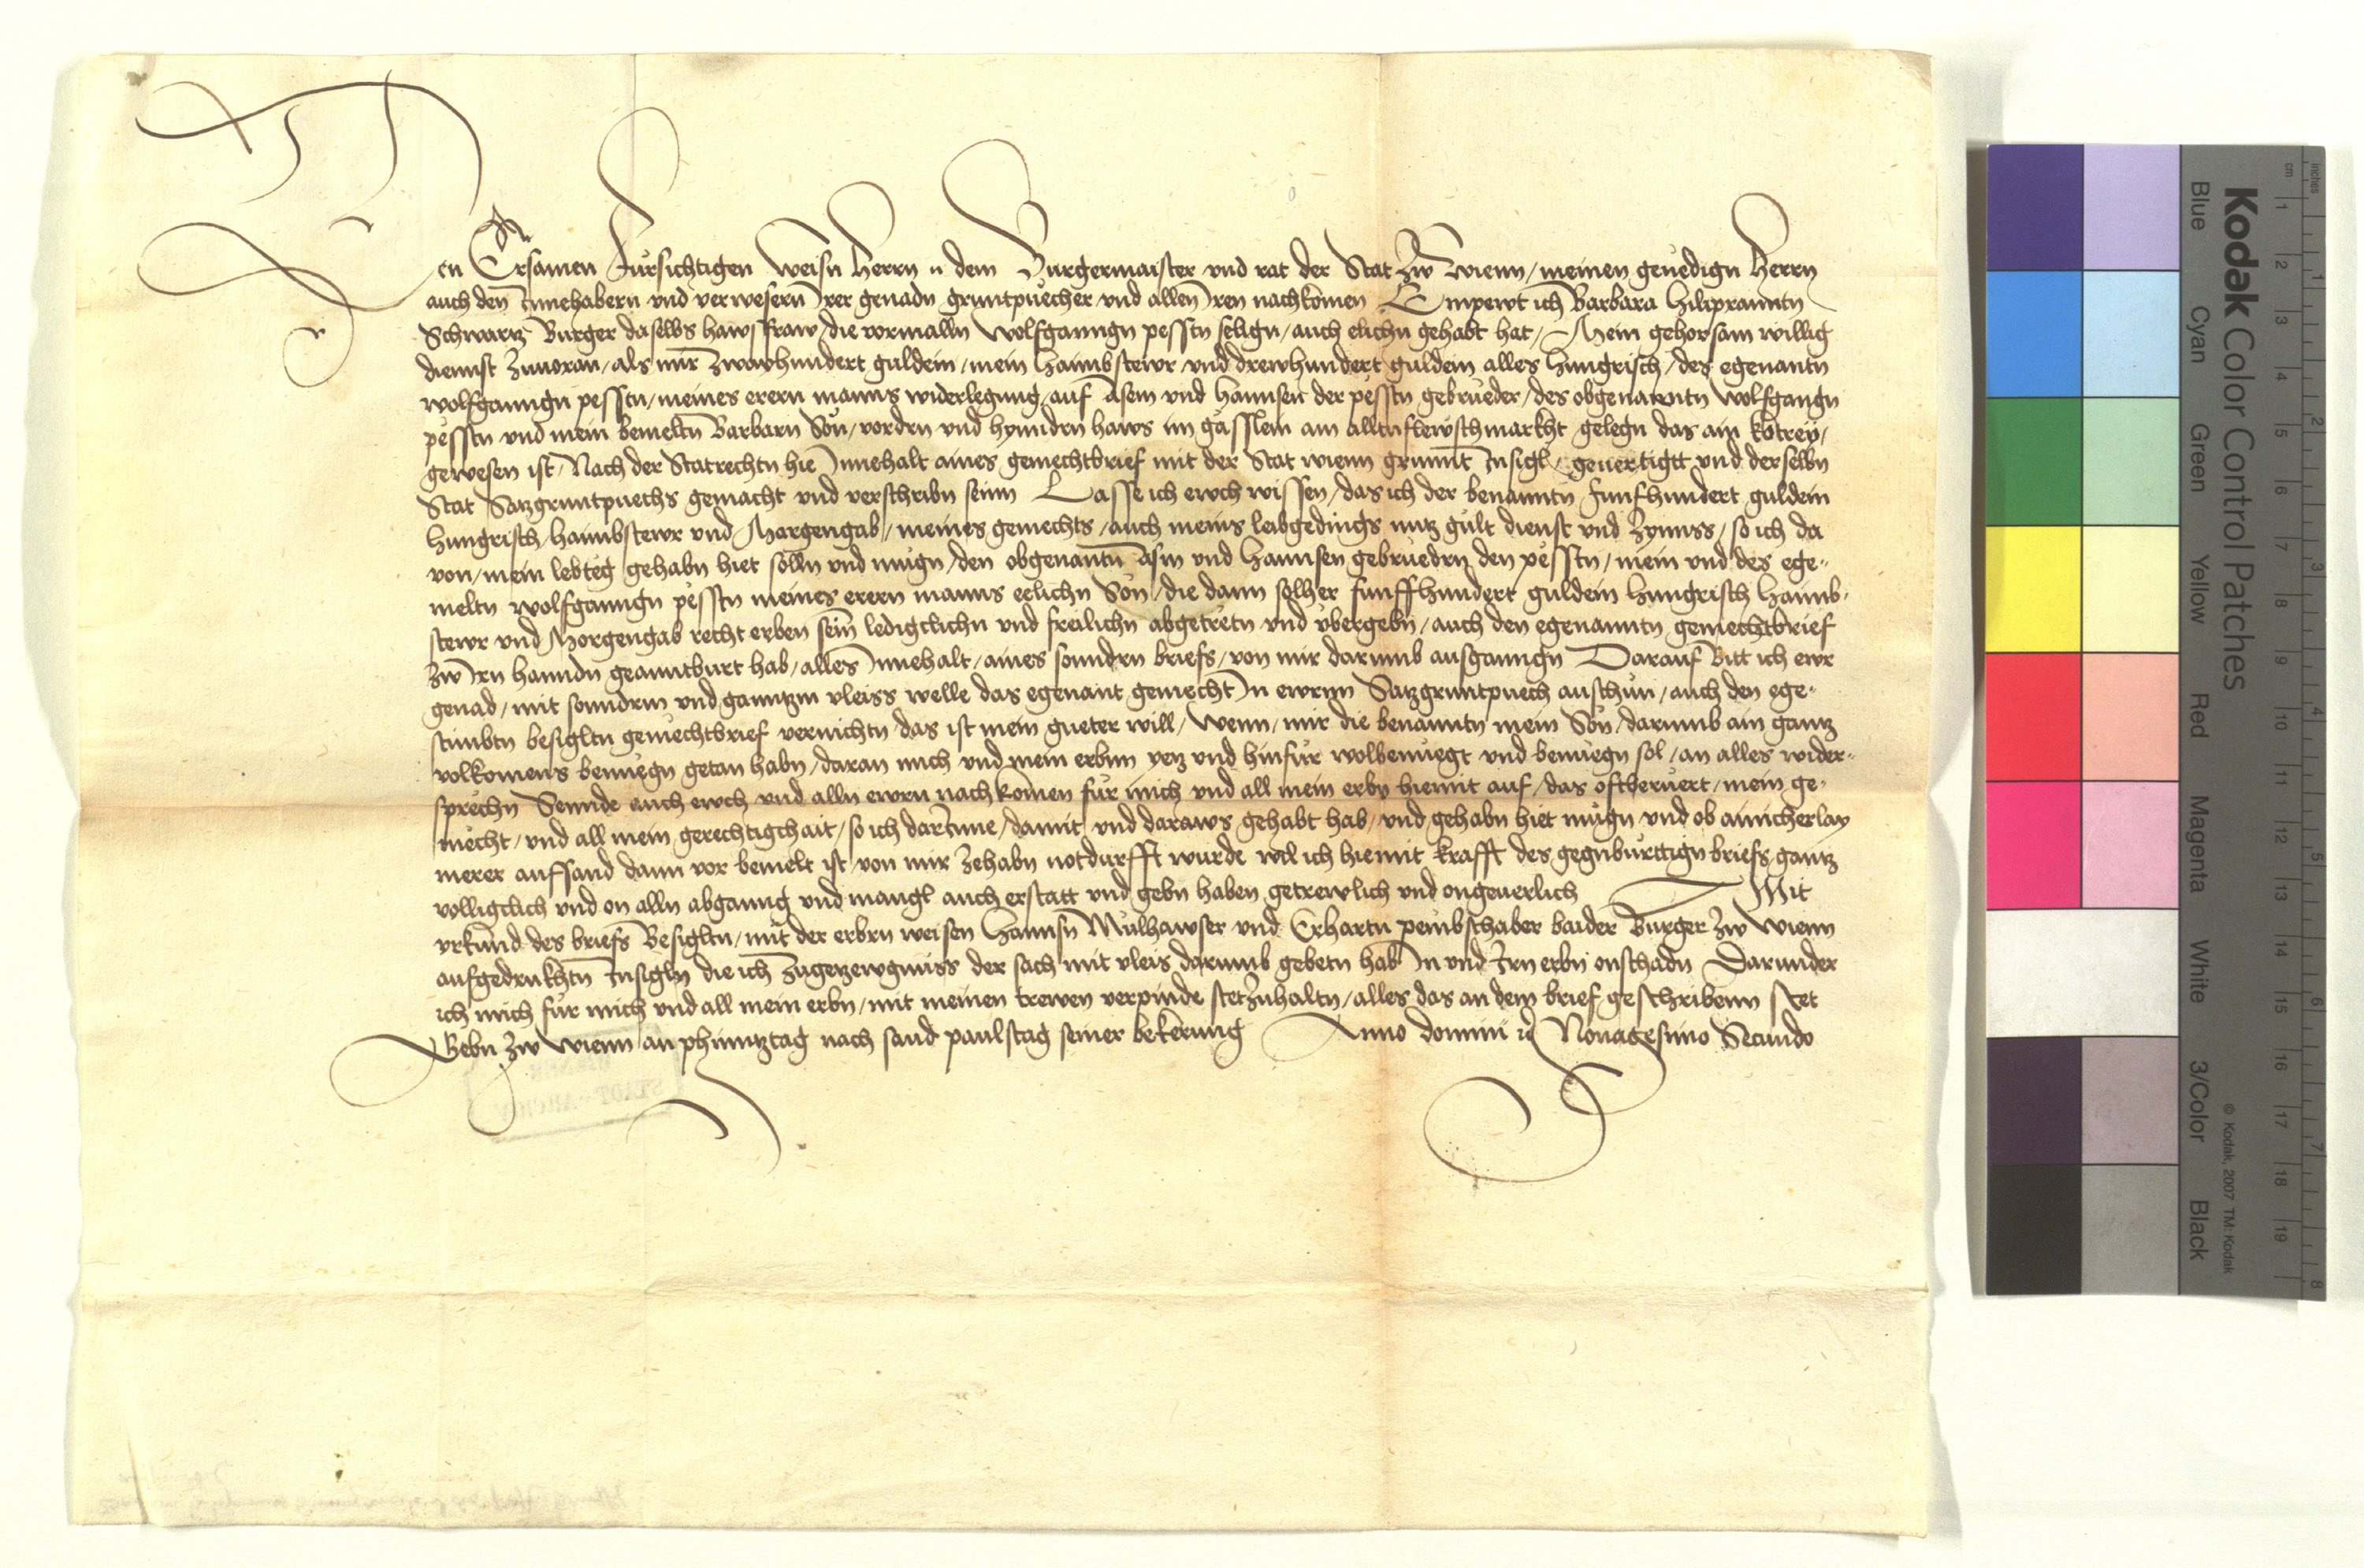 Den Ersamen Fursichtigen Weisn Herrn n dem Burgermaister vnd rat der Stat zw Wienn / meinen genedign Herrn
auch den Innehabern vnd verwesern Irer genadn gruntpuecher vnd allen Iren nachkomen Empewt ich Barbara Hiliprannttn
Schwartz Burger daselbs hawsfraw / die vormalln Wolfganngn pesstn selign / auch elichn gehabt hat / Mein gehorsam willig
diennst zuuoran / als mir zwayhundert guldein / mein haimbstewr vnd drewhundert guldein alles hungrisch / des egenantn
wolfganngn pesstn / meines erern manns widerlegung / auf Asem vnd Hannsen der pesstn gebrueder / des obgenanntn Wolfgangn
pesstn vnd mein bemeltn Barbarn Sün / vordrn vnd hynndrn haws im gässlein am alltnfleischmarkht gelegn das ain kotrey /
gewesen ist / Nach der Statrechtn hie Innehalt aines gemechtbrief mit der Stat wienn grunnt Insigl / geuertigtt vnd derselbn
Stat Satzgruntpuechs gemacht vnd verschribn seinn Lasse ich ewch wissen / das ich der benanntn funfhundert guldein
hungrisch / haimbstewr vnd Margengab / meines gemechts / auch meins leibgedings nutz gult dienst vnd zynnss / so ich da
von / mein lebteg gehabn hiet solln vnd mugn / den obgenantn Asm vnd Hannsen gebruedrn den pesstn / mein vnd des ege-
meltn wolfganngn pesstn meines erern manns eelichn Sün / die dann solher funffhundert guldein hungrisch haimb-
stewr vnd Morgengab recht erben sein ledigclichn vnd freilichn abgetretn vnd vbergebn / auch den egenanntn gemechtbrief
zw Irn hanndn geanntburt hab / alles Innehalt / aines sonndrn briefs / von mir darumb ausganngn Darauf Bitt ich ewr
genad / mit sonndrm vnd ganntzm vleiss welle das egenant gemecht In ewrnn Satzgruntpuech abschün / auch den ege-
stimbtn besigltn gemechtbrief vernichtn / das ist mein gueter will / Wenn / mir die benanntn mein Sün / darumb ain gantz
volkomens benuegn getan habn / daran mich vnd mein erbnn yetz vnd hinfür wolbenuegt vnd benuegn sol / an alles wider-
sprechn Sennde auch ewch vnd alln ewrn nachkomen für mich vnd all mein erbn hiemit auf / das oftberuert / mein ge-
mecht / vnd all mein gerechtigchait / so ich darInne / damit vnd daraws gehabt hab / vnd gehabn hiet mugn vnd ob ainicherlay
merer aufsannd dann vor bemelt ist / von mir zehabn notdurfft wurde wil ich hiemit krafft des gegnburttign briefs gantz
volligclich vnd on alln abganng vnd mangl auch erstatt vnd gebn haben getrewlich vnd ongeuerlich Mit
vrkund des briefs Besigltn / mit der erbrn weisen Hannsn Mulhawser vnd Erhartn peinbschaber baider Burger zw Wienn
aufgedrukhtn Insigln die ich zugetzewgnuss der sach mit vleis darumb gebetn hab In vnd Irn erbn onschadn Darunder
ich mich für mich vnd all mein erbn / mit meinen trewen verpinde stetzuhaltn / alles das an dem brief geschribenn stet
Gebn zw Wienn an phinntztag nach sand paulstag seiner bekerung Anno domini ꝛc Nonagesimo Secundo
Kodak Color Control Patches
Blue Cyan Green Yellow Red Magenta White 3/Color Black
© Kodak, 2007 TM: Kodak
inches 1 2 3 4 5 6 7 8
cm 1 2 3 4 5 6 7 8 9 10 11 12 13 14 15 16 17 18 19